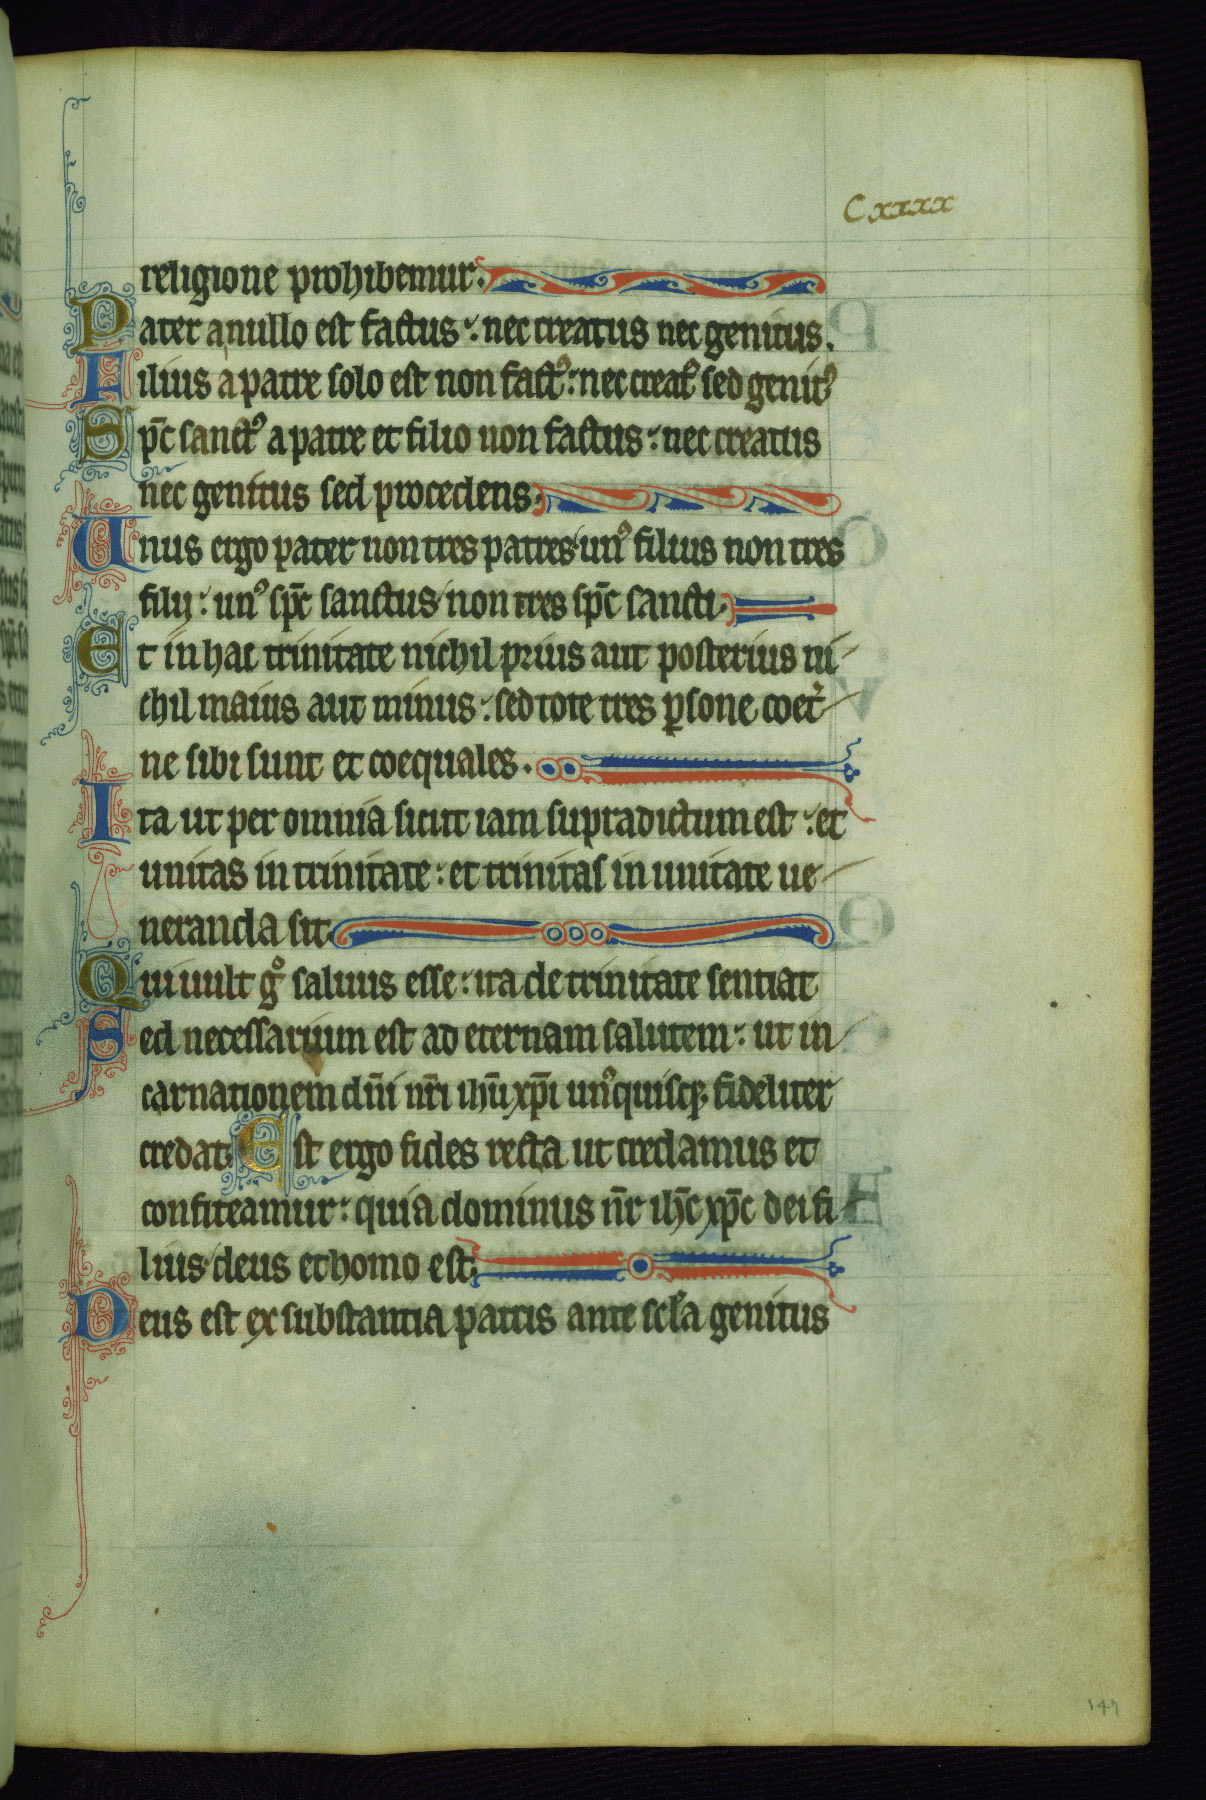 Cxxxx
religione prohibemur.
Pater a nullo est factus: nec creatus nec genitus.
Filius a patre solo est non factꝰ: nec creatꝰ sed genitꝰ
Sp̄c sanctꝰ a patre et filio non factus: nec creatus
nec genitus sed procedens.
Unus ergo pater non tres patres unꝰ filius non tres
filij: unꝰ sp̄c sanctus non tres sp̄c sancti.
Et in hac trinitate nichil prius aut posterius ni-
chil maius aut minus: sed tote tres ꝑsone coet̾-
ne sibi sunt et coequales.
Ita ut per omnia sicut iam supradictum est: et
unitas in trinitate: et trinitas in unitate ue-
neranda sit.
Qui uult gͦ saluus esse: ita de trinitate sentiat
Sed necessarium est ad eternam salutem: ut in-
carnationem dn̄i nr̄i ihū xp̄i unꝰquisqꝫ fideliter
credat. Est ergo fides recta ut credamus et
confiteamur: quia dominus nr̄ ih̄c xp̄c dei fi-
lius deus et homo est.
Deus est ex substantia patris ante sc̄la genitus
147